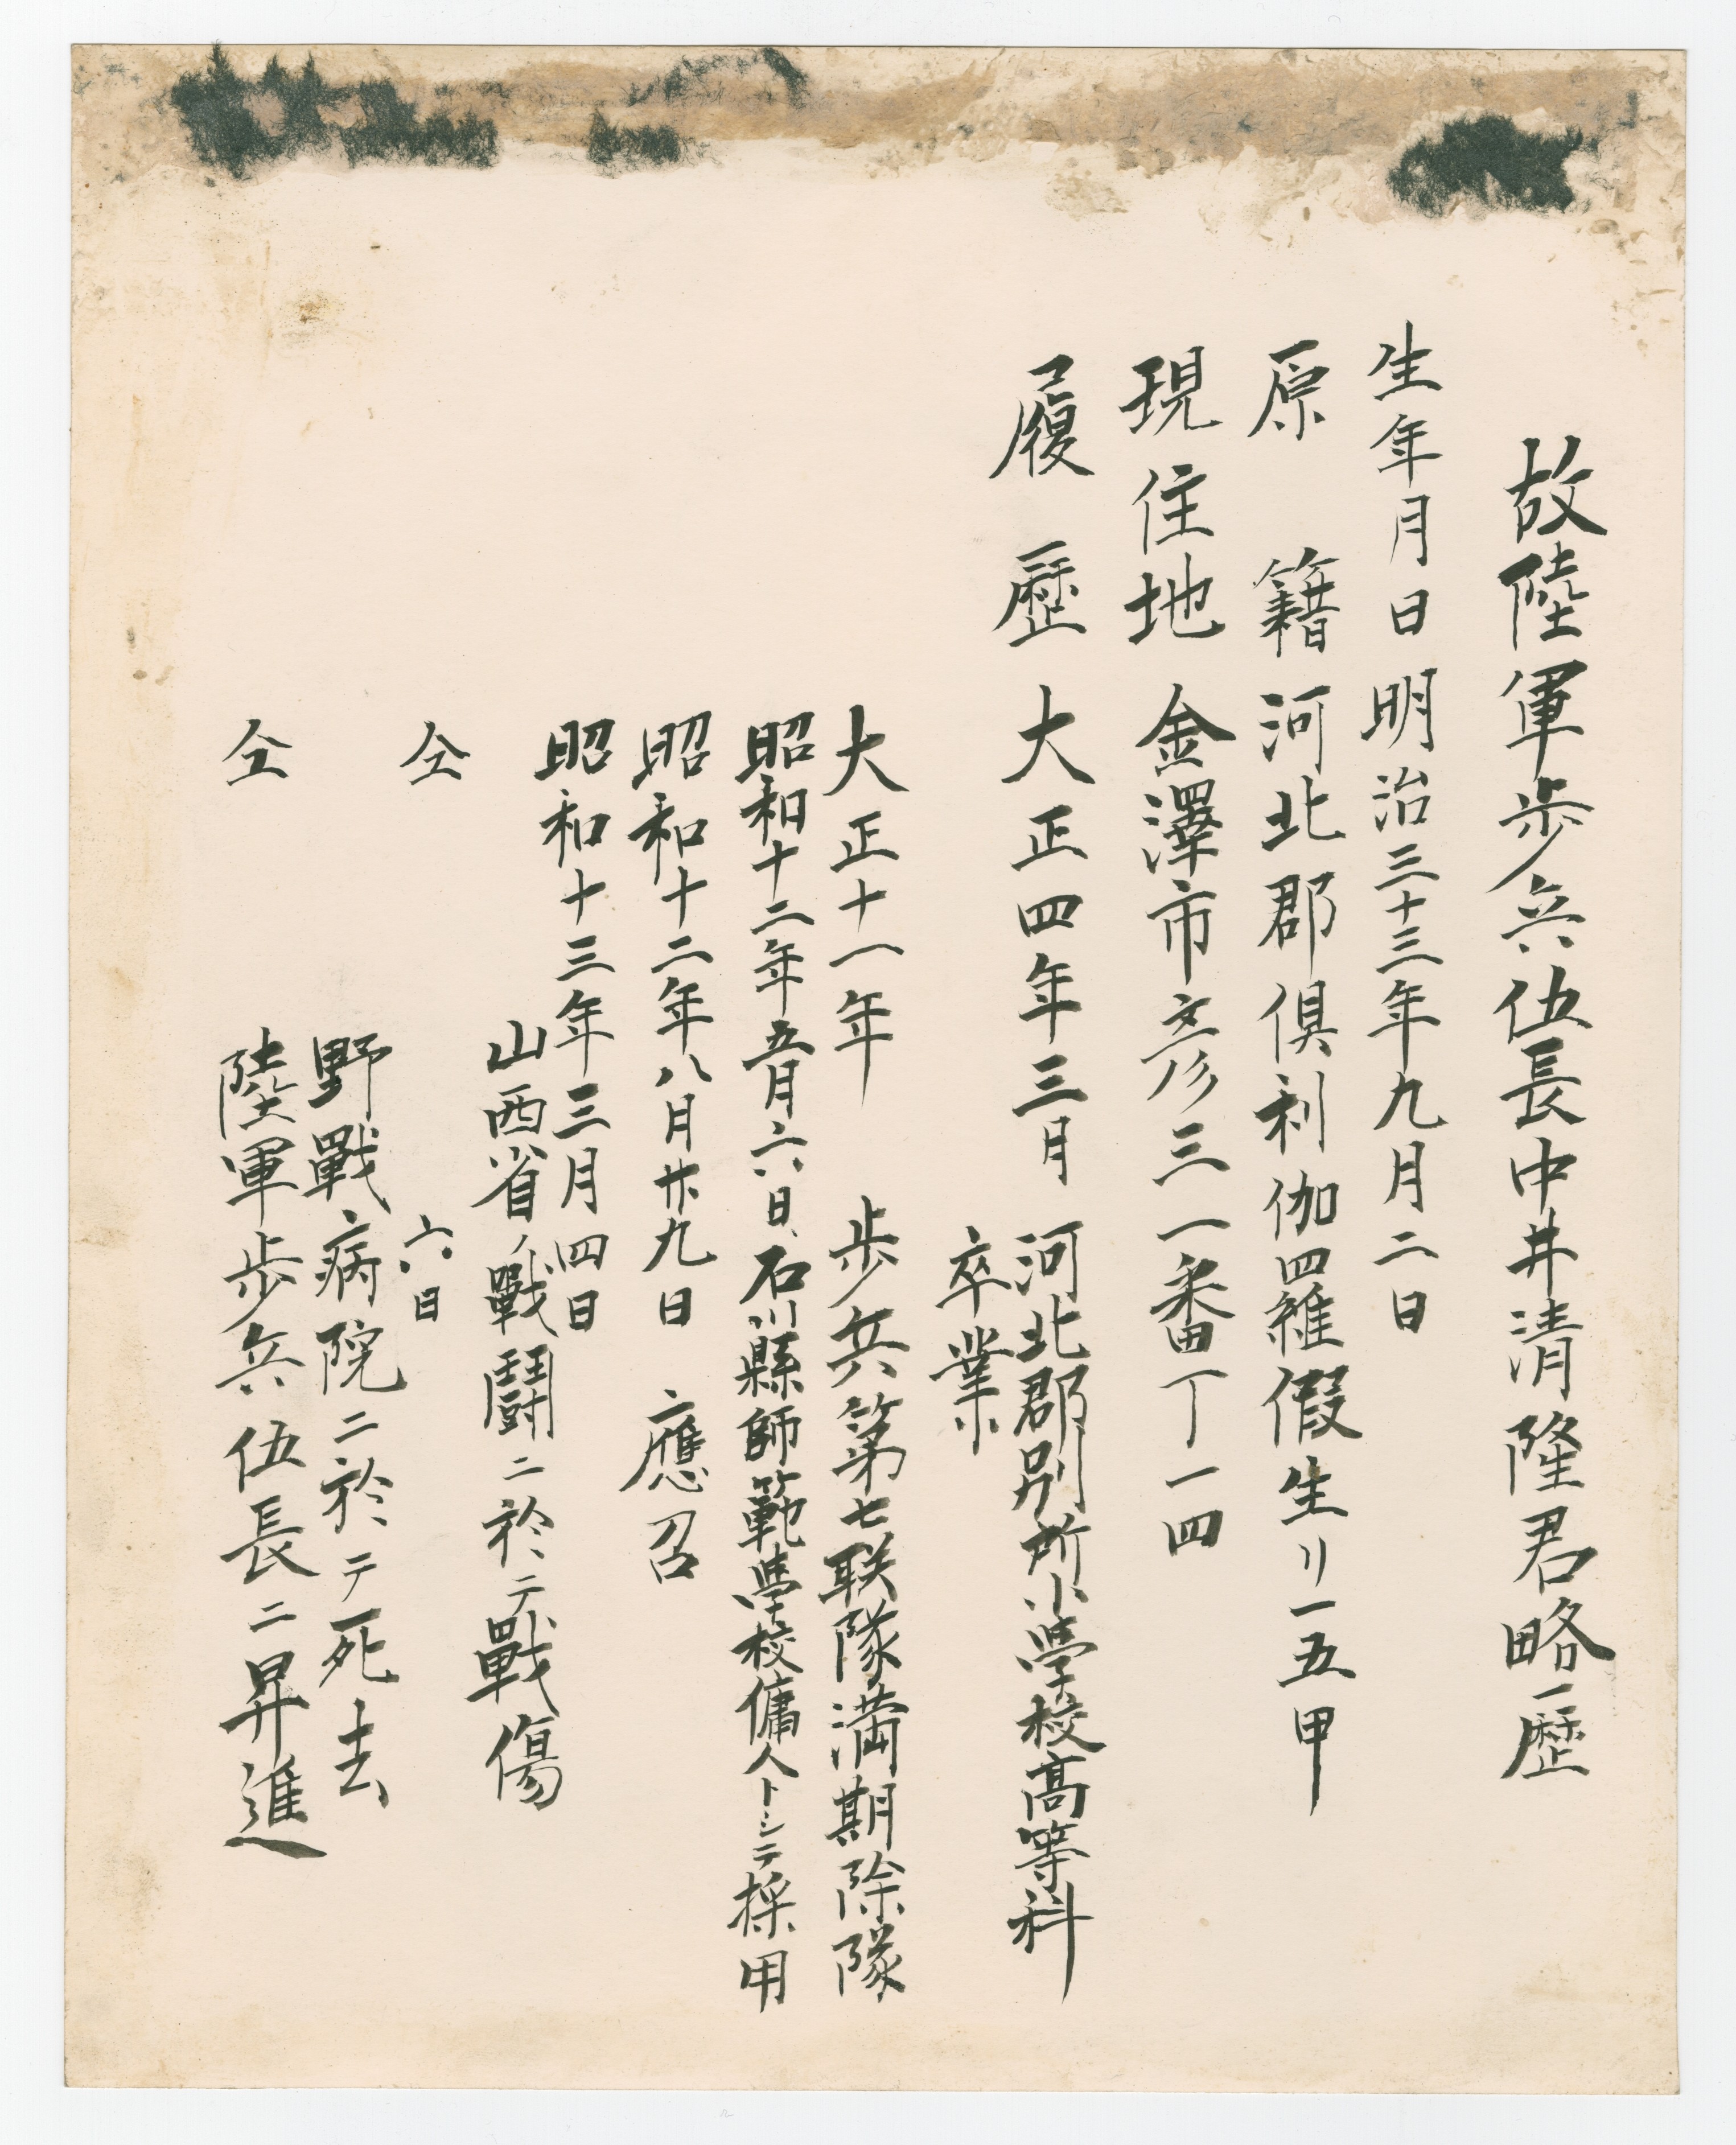 故陸軍歩兵伍長中井清隆君略歴
生年月日 明治三十三年九月二日
原籍 河北郡倶利伽羅假生リ一五甲
現住地 金澤市彦三一番丁一四
履歴 大正四年三月 河北郡別所小學校高等科
卒業
大正十一年 歩兵第七联隊満期除隊
昭和十二年五月六日、石川縣師範學校傭人トシテ採用
昭和十二年八月廿九日 應召
昭和十三年三月四日
山西省ノ戰鬪ニ於テ戰傷
仝 六日
野戰病院ニ於テ死去
仝 陸軍歩兵伍長ニ昇進